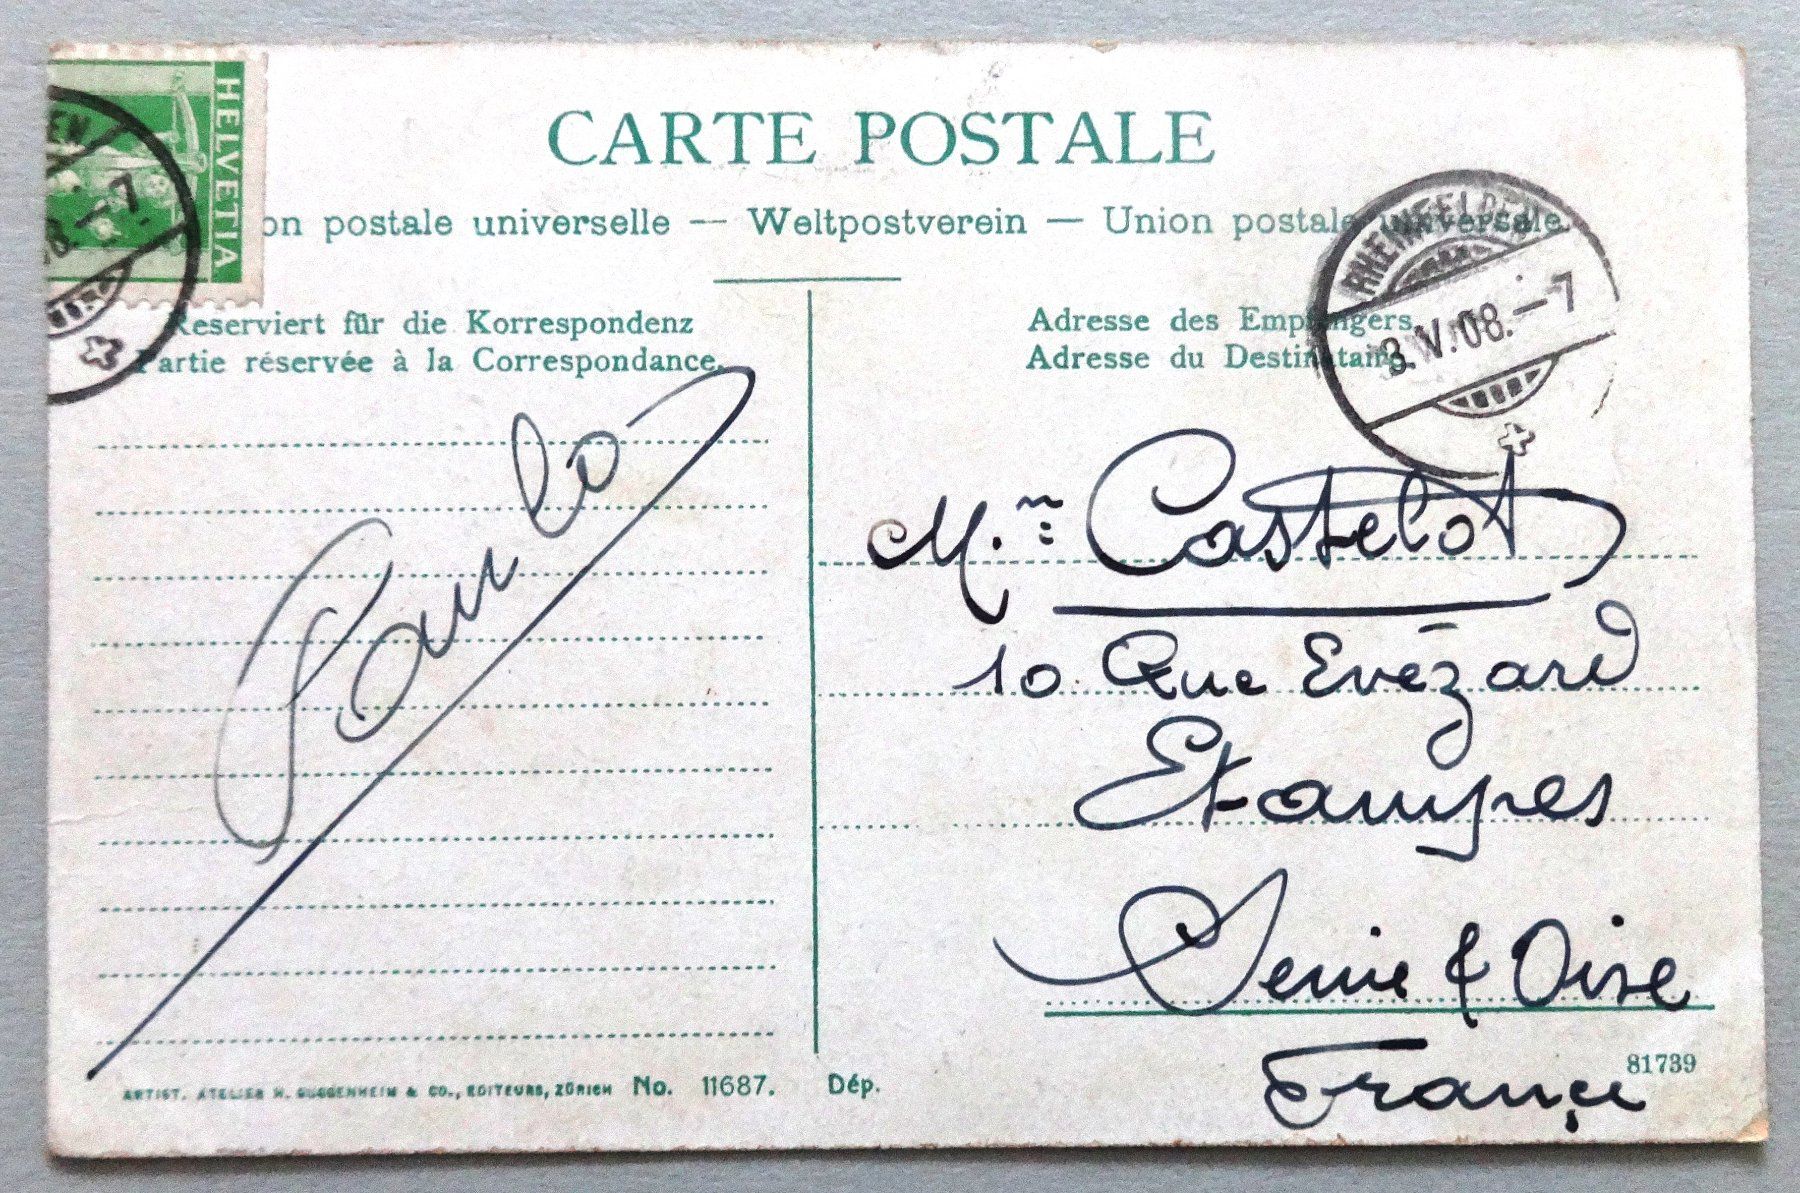 HELVETIA
CARTE POSTALE
on postale universelle — Weltpostverein — Union postale universale
RHEINFELDEN
3.V.08.—7
Reserviert für die Korrespondenz
Partie réservée à la Correspondance.
Adresse des Empfängers
Adresse du Destinataire
Paulo
M.me Castelot
10 Rue Evézard
Etampes
Seine & Oise
France
81739
ARTIST. ATELIER H. GUGGENHEIM & CO., EDITEURS, ZÜRICH No. 11687. Dép.